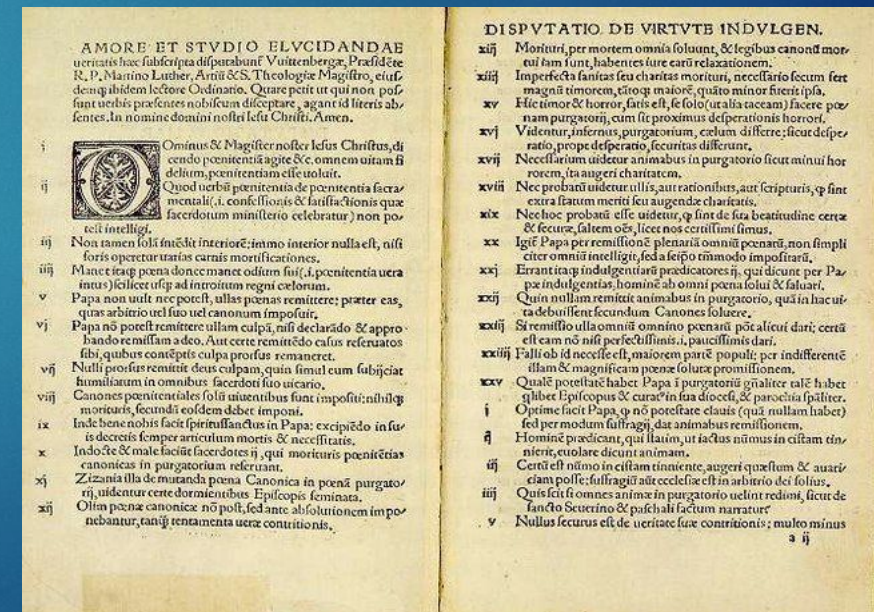 AMORE ET STVDIO ELVCIDANDAE
ueritatis hæc ſubſcripta diſputabunt᷑ Vuittenbergæ, Præſidẽte
R. P. Martino Luther, Artiũ & S. Theologiæ Magiſtro, eiuſ-
demq; ibidem lectore Ordinario. Quare petit ut qui non poſ-
ſunt uerbis præſentes nobiſcum diſceptare, agant id literis ab-
ſentes. In nomine domini noſtri Ieſu Chriſti. Amen.
i DOminus & Magiſter noſter Ieſus Chriſtus, di
cendo pœnitentiã agite &c. omnem uitam fi
delium, pœnitentiam eſſe uoluit.
ij Quod uerbũ pœnitentia de pœnitentia ſacra-
mentali (.i. confeſſionis & ſatiſfactionis quæ
ſacerdotum miniſterio celebratur) non po-
teſt intelligi.
iij Non tamen ſolã intẽdit interiorẽ: immo interior nulla eſt, niſi
foris operetur uarias carnis mortificationes.
iiij Manet itaq; pœna donec manet odium ſui (.i. pœnitentia uera
intus) ſcilicet uſq; ad introitum regni cælorum.
v Papa non uult nec poteſt, ullas pœnas remittere: præter eas,
quas arbitrio uel ſuo uel canonum impoſuit.
vj Papa nõ poteſt remittere ullam culpã, niſi declarãdo & appro-
bando remiſſam a deo. Aut certe remittẽdo caſus reſeruatos
ſibi, quibus contẽptis culpa prorſus remaneret.
vij Nulli prorſus remittit deus culpam, quin ſimul eum ſubijciat
humiliatum in omnibus ſacerdoti ſuo uicario.
viij Canones pœnitentiales ſolũ uiuentibus ſunt impoſiti: nihilq;
morituris, ſecundũ eoſdem debet imponi.
ix Inde bene nobis facit ſpirituſſanctus in Papa: excipiẽdo in ſu-
is decretis ſemper articulum mortis & neceſſitatis.
x Indocte & male faciũt ſacerdotes ij, qui morituris pœnitẽtias
canonicas in purgatorium reſeruant.
xj Zizania illa de mutanda pœna Canonica in pœnã purgato-
rij, uidentur certe dormientibus Epiſcopis ſeminata.
xij Olim pœnæ canonicæ nõ poſt, ſed ante abſolutionem impo-
nebantur, tanq̃ tentamenta ueræ contritionis.
DISPVTATIO DE VIRTVTE INDVLGEN.
xiij Morituri, per mortem omnia ſoluunt, & legibus canonũ mor-
tui iam ſunt, habentes iure earũ relaxationem.
xiiij Imperfecta ſanitas ſeu charitas morituri, neceſſario ſecum fert
magnũ timorem, tãtoq; maiorẽ, quãto minor fuerit ipſa.
xv Hic timor & horror, ſatis eſt, ſe ſolo (ut alia taceam) facere pœ-
nam purgatorij, cum ſit proximus deſperationis horrori.
xvj Videntur, infernus, purgatorium, cælum differre: ſicut deſpe-
ratio, prope deſperatio, ſecuritas differunt.
xvij Neceſſarium uidetur animabus in purgatorio ſicut minui hor
rorem, ita augeri charitatem.
xviij Nec probatũ uidetur ullis, aut rationibus, aut ſcripturis, ꝙ ſint
extra ſtatum meriti ſeu augendæ charitatis.
xix Nec hoc probatũ eſſe uidetur, ꝙ ſint de ſua beatitudine certæ
& ſecuræ, ſaltem oẽs, licet nos certiſſimi ſimus.
xx Igit᷑ Papa per remiſſionẽ plenariã omniũ pœnarũ, non ſimpli
citer omniũ intelligit, ſed a ſeipſo tm̃modo impoſitarũ.
xxj Errant itaq; indulgentiarũ prædicatores ij, qui dicunt per Pa-
pæ indulgentias, hominẽ ab omni pœna ſolui & ſaluari.
xxij Quin nullam remittit animabus in purgatorio, quã in hac ui-
ta debuiſſent ſecundum Canones ſoluere.
xxiij Si remiſſio ulla omniũ omnino pœnarũ põt alicui dari: certũ
eſt eam nõ niſi perfectiſſimis .i. pauciſſimis dari.
xxiiij Falli ob id neceſſe eſt, maiorem partẽ populi: per indifferentẽ
illam & magnificam pœnæ ſolutæ promiſſionem.
xxv Qualẽ poteſtatẽ habet Papa ĩ purgatoriũ gñaliter talẽ habet
q̃libet Epiſcopus & curat᷒ in ſua diocẽſi, & parochia ſpãliter.
i Optime facit Papa, ꝙ nõ poteſtate clauis (quã nullam habet)
ſed per modum ſuffragij, dat animabus remiſſionem.
ij Hominẽ prædicant, qui ſtatim, ut iactus nũmus in ciſtam tin-
nierit, euolare dicunt animam.
iij Certũ eſt nũmo in ciſtam tinniente, augeri quæſtum & auari-
ciam poſſe: ſuffragiũ aũt eccleſiæ eſt in arbitrio dei ſolius.
iiij Quis ſcit ſi omnes animæ in purgatorio uelint redimi, ſicut de
ſancto Seuerino & paſchali factum narratur?
v Nullus ſecurus eſt de ueritate ſuæ contritionis: multo minus
a ij